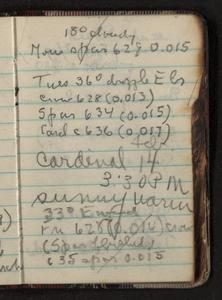 18° cloudy
Mon spar 629 0.015
Tues 36° drizzle E br
crow 628 (0.013)
Spar 634 (0.015)
Card c 636 (0.017)
Cardinal 14
3:30 PM
sunny warm
33° E
628 (0.014) crow
(Spar
c 35 spar 0.015